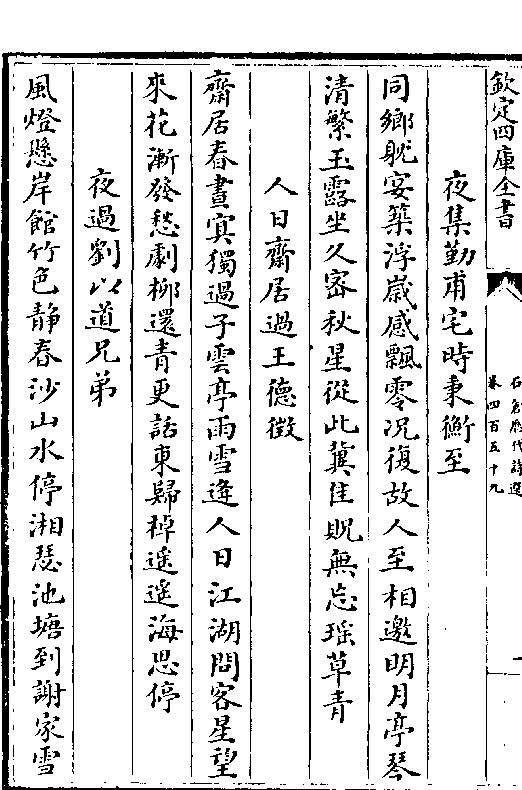 欽定四庫全書
石倉歷代詩選
卷四百五十九
夜集勤甫宅時秉衡至
同鄉躭宴築浮嵗感飄零况復故人至相邀明月亭琴
清繁玉露坐久密秋星從此冀佳貺無忘瑶草青
人日齋居過王德徴
齋居春晝寂獨過子雲亭雨雪逢人日江湖問客星望
來花漸發愁劇柳還青更話東歸棹遥遥海思停
夜過劉以道兄弟
風燈懸岸館竹色静春沙山水停湘瑟池塘到謝家雪